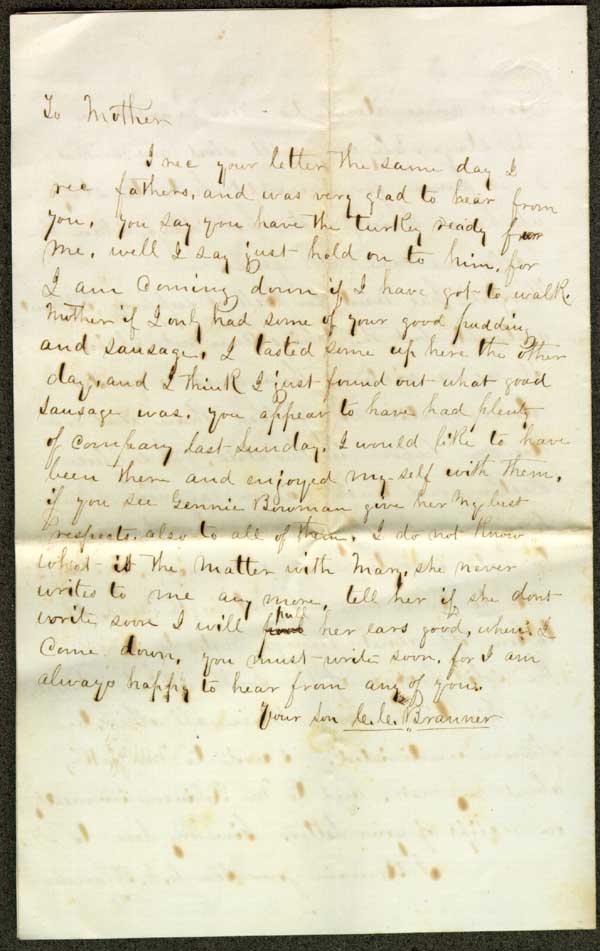 To Mother
I rec your letter the same day I
rec fathers, and was very glad to hear from
you, you say you have the turkey ready for
me, well I say just hold on to him, for
I am Coming down if I have got to walk.
Mother if I only had some of your good pudding
and sausage, I tasted some up here the other
day, and I think I just found out what good
sausage was. you appear to have had plenty
of Company last Sunday. I would like to have
been there and enjoyed my-self with them,
if you see Gennie Bowman give her my best
respects, also to all of them, I do not know
what is the matter with Mary, she never
writes to me any more, tell her if she dont
write soon I will pull her ears good, when I
Come down, you must write soon, for I am
always happy to hear from any of you.
Your Son C.C. Branner